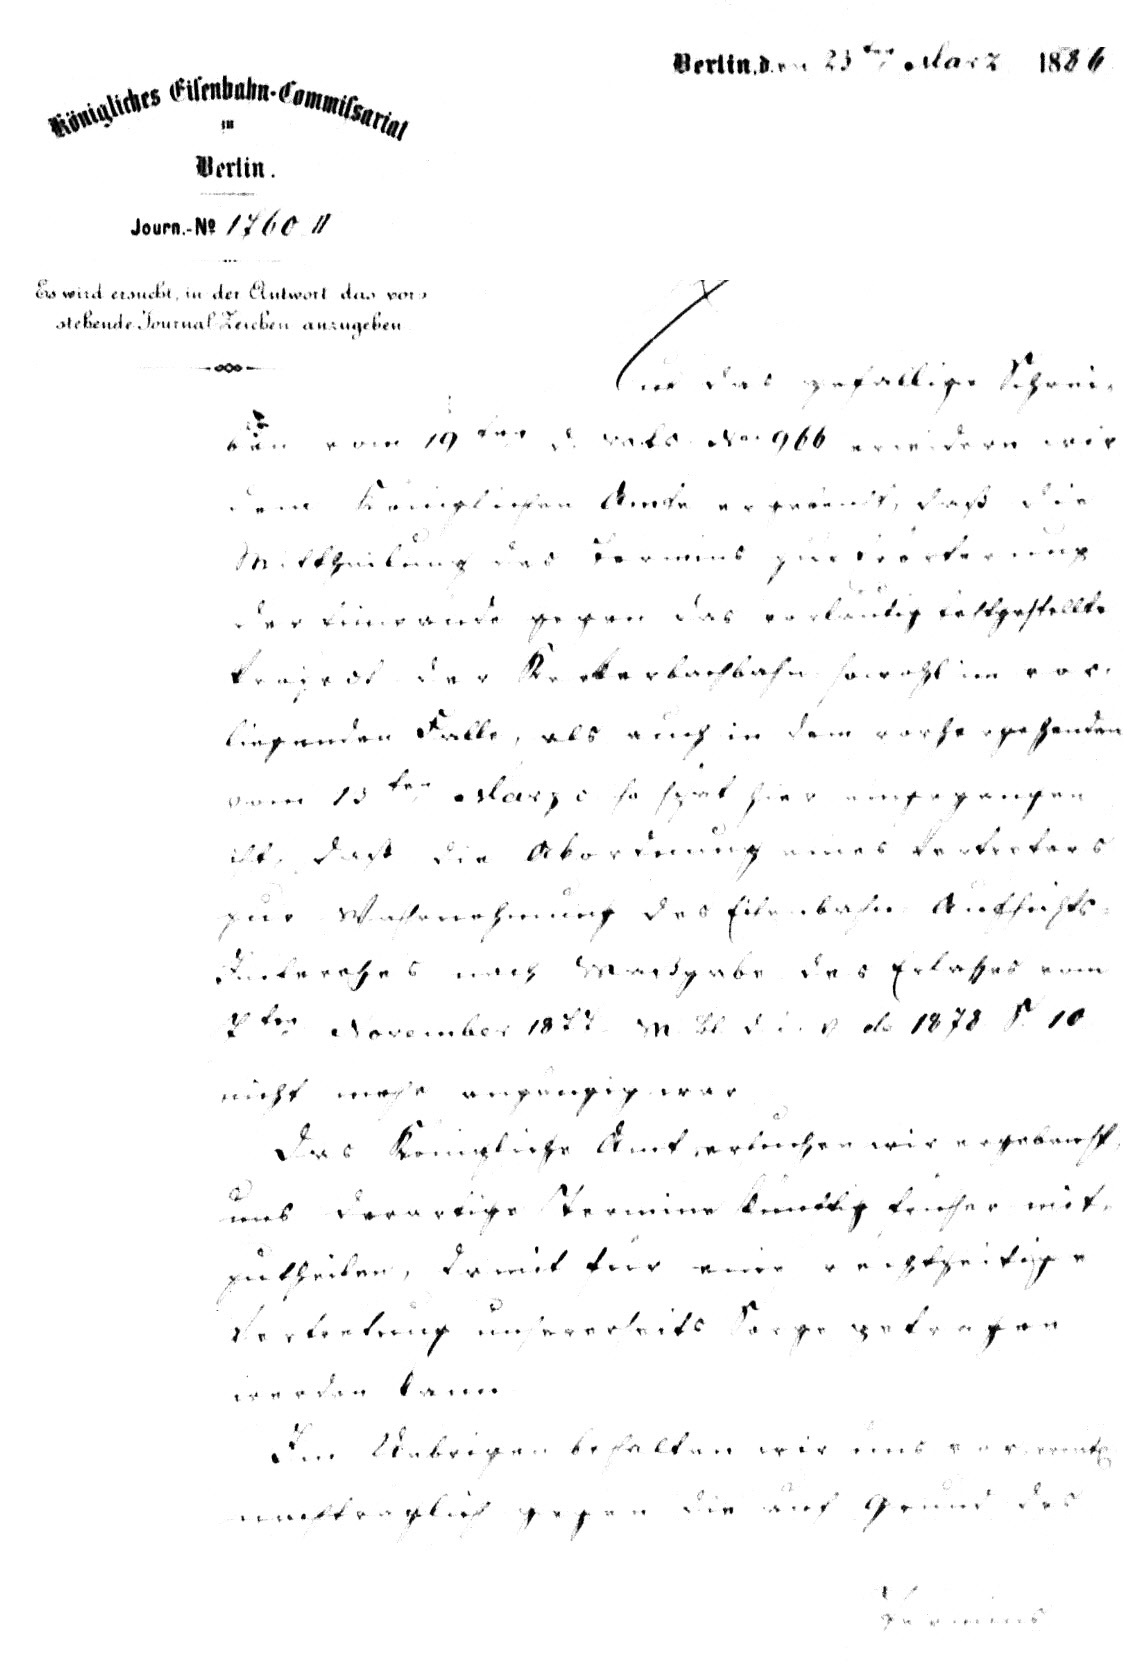 Berlin, den 23ten März 1886
Königliches Eisenbahn-Commissariat
in
Berlin.
Journ.-№ 1760 II
Es wird ersucht, in der Antwort das vor-
stehende Journal Zeichen anzugeben
Auf das gefällige Schrei-
ben vom 19ten d. Mts. No 966 erwidern wir
dem Königlichen Amte ergebenst, daß die
Mittheilung des Termins zur Erörterung
der Einwände gegen das vorläufig festgestellte
Project der Kerkerbachbahn sowohl im vor-
liegenden Falle, als auch in dem vorhergehenden
vom 13ten März c so spät hier eingegangen
ist, daß die Abordnung eines Vertreters
zur Wahrnehmung des Eisenbahn-Aufsichts-
Interesses nach Maaßgabe des Erlasses vom
7ten November 1877 M. Bl. d. i. V. de 1878 S. 10
nicht mehr angängig war
Das Königliche Amt ersuchen wir ergebenst,
uns derartige Termine künftig früher mit-
zutheilen, damit für eine rechtzeitige
Vertretung unsererseits Sorge getragen
werden kann
Im Uebrigen behalten wir uns vor, eventl.
nachträglich gegen die auf Grund des
Termins